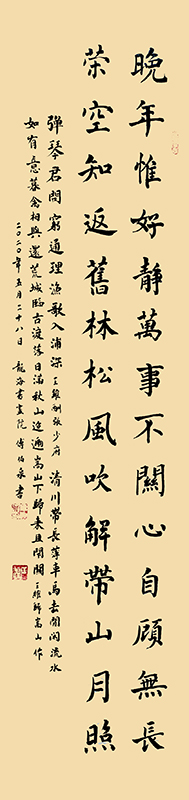 晚年惟好靜萬事不關心自顧無長
策空知返舊林松風吹解帶山月照
彈琴君問窮通理漁歌入浦深 王維酬張少府 清川帶長薄車馬去閒閒流水
如有意暮禽相與還荒城臨古渡落日滿秋山迢遞嵩山下歸來且閉關 王維歸嵩山作
二〇二〇年五月二十八日 龍海書畫院 傅伯泉書